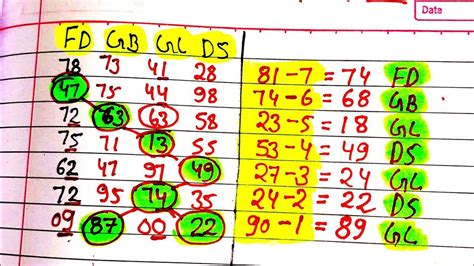 Data
FD GB GL DS
78 73 41 28
47 75 44 98
72 63 63 58
75 71 13 55
62 47 97 49
72 95 74 35
09 87 00 22
81-7=74 FD
74-6=68 GB
23-5=18 GL
53-4=49 DS
27-3=24 GL
24-2=22 DS
90-1=89 GL